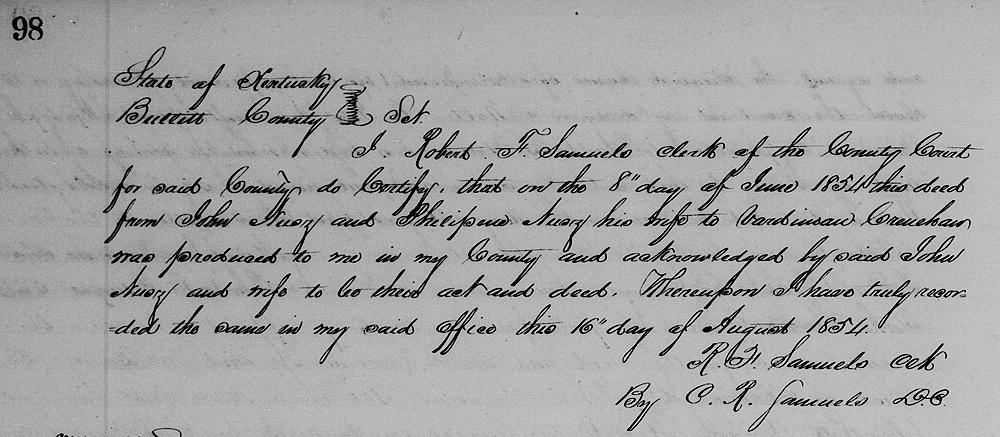 98
State of Kentucky
Bullitt County } Sct
I. Robert F. Samuels clerk of the County Court
for said County do Certify, that on the 8" day of June 1854 this deed
from John Nusz and Philipena Nusz his wife to Vardiman Crenshaw
was produced to me in my County and acknowledged by said John
Nusz and wife to be their act and deed. Whereupon I have truly recor=
=ded the same in my said office this 16" day of August 1854.
R. F. Samuels Clk
By C. R. Samuels D.C.